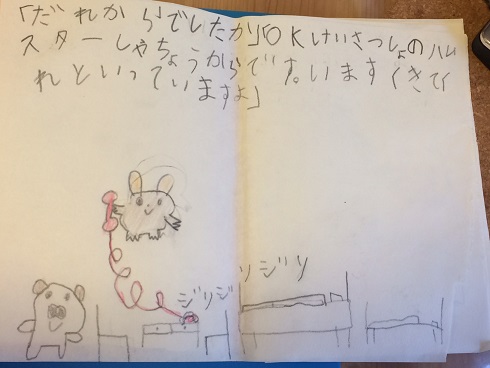 「だれからでしたか」OKけいさつしょのハム
スターしゃちょうからです。いますぐきてく
れといっていますよ」
ジリジリジリ